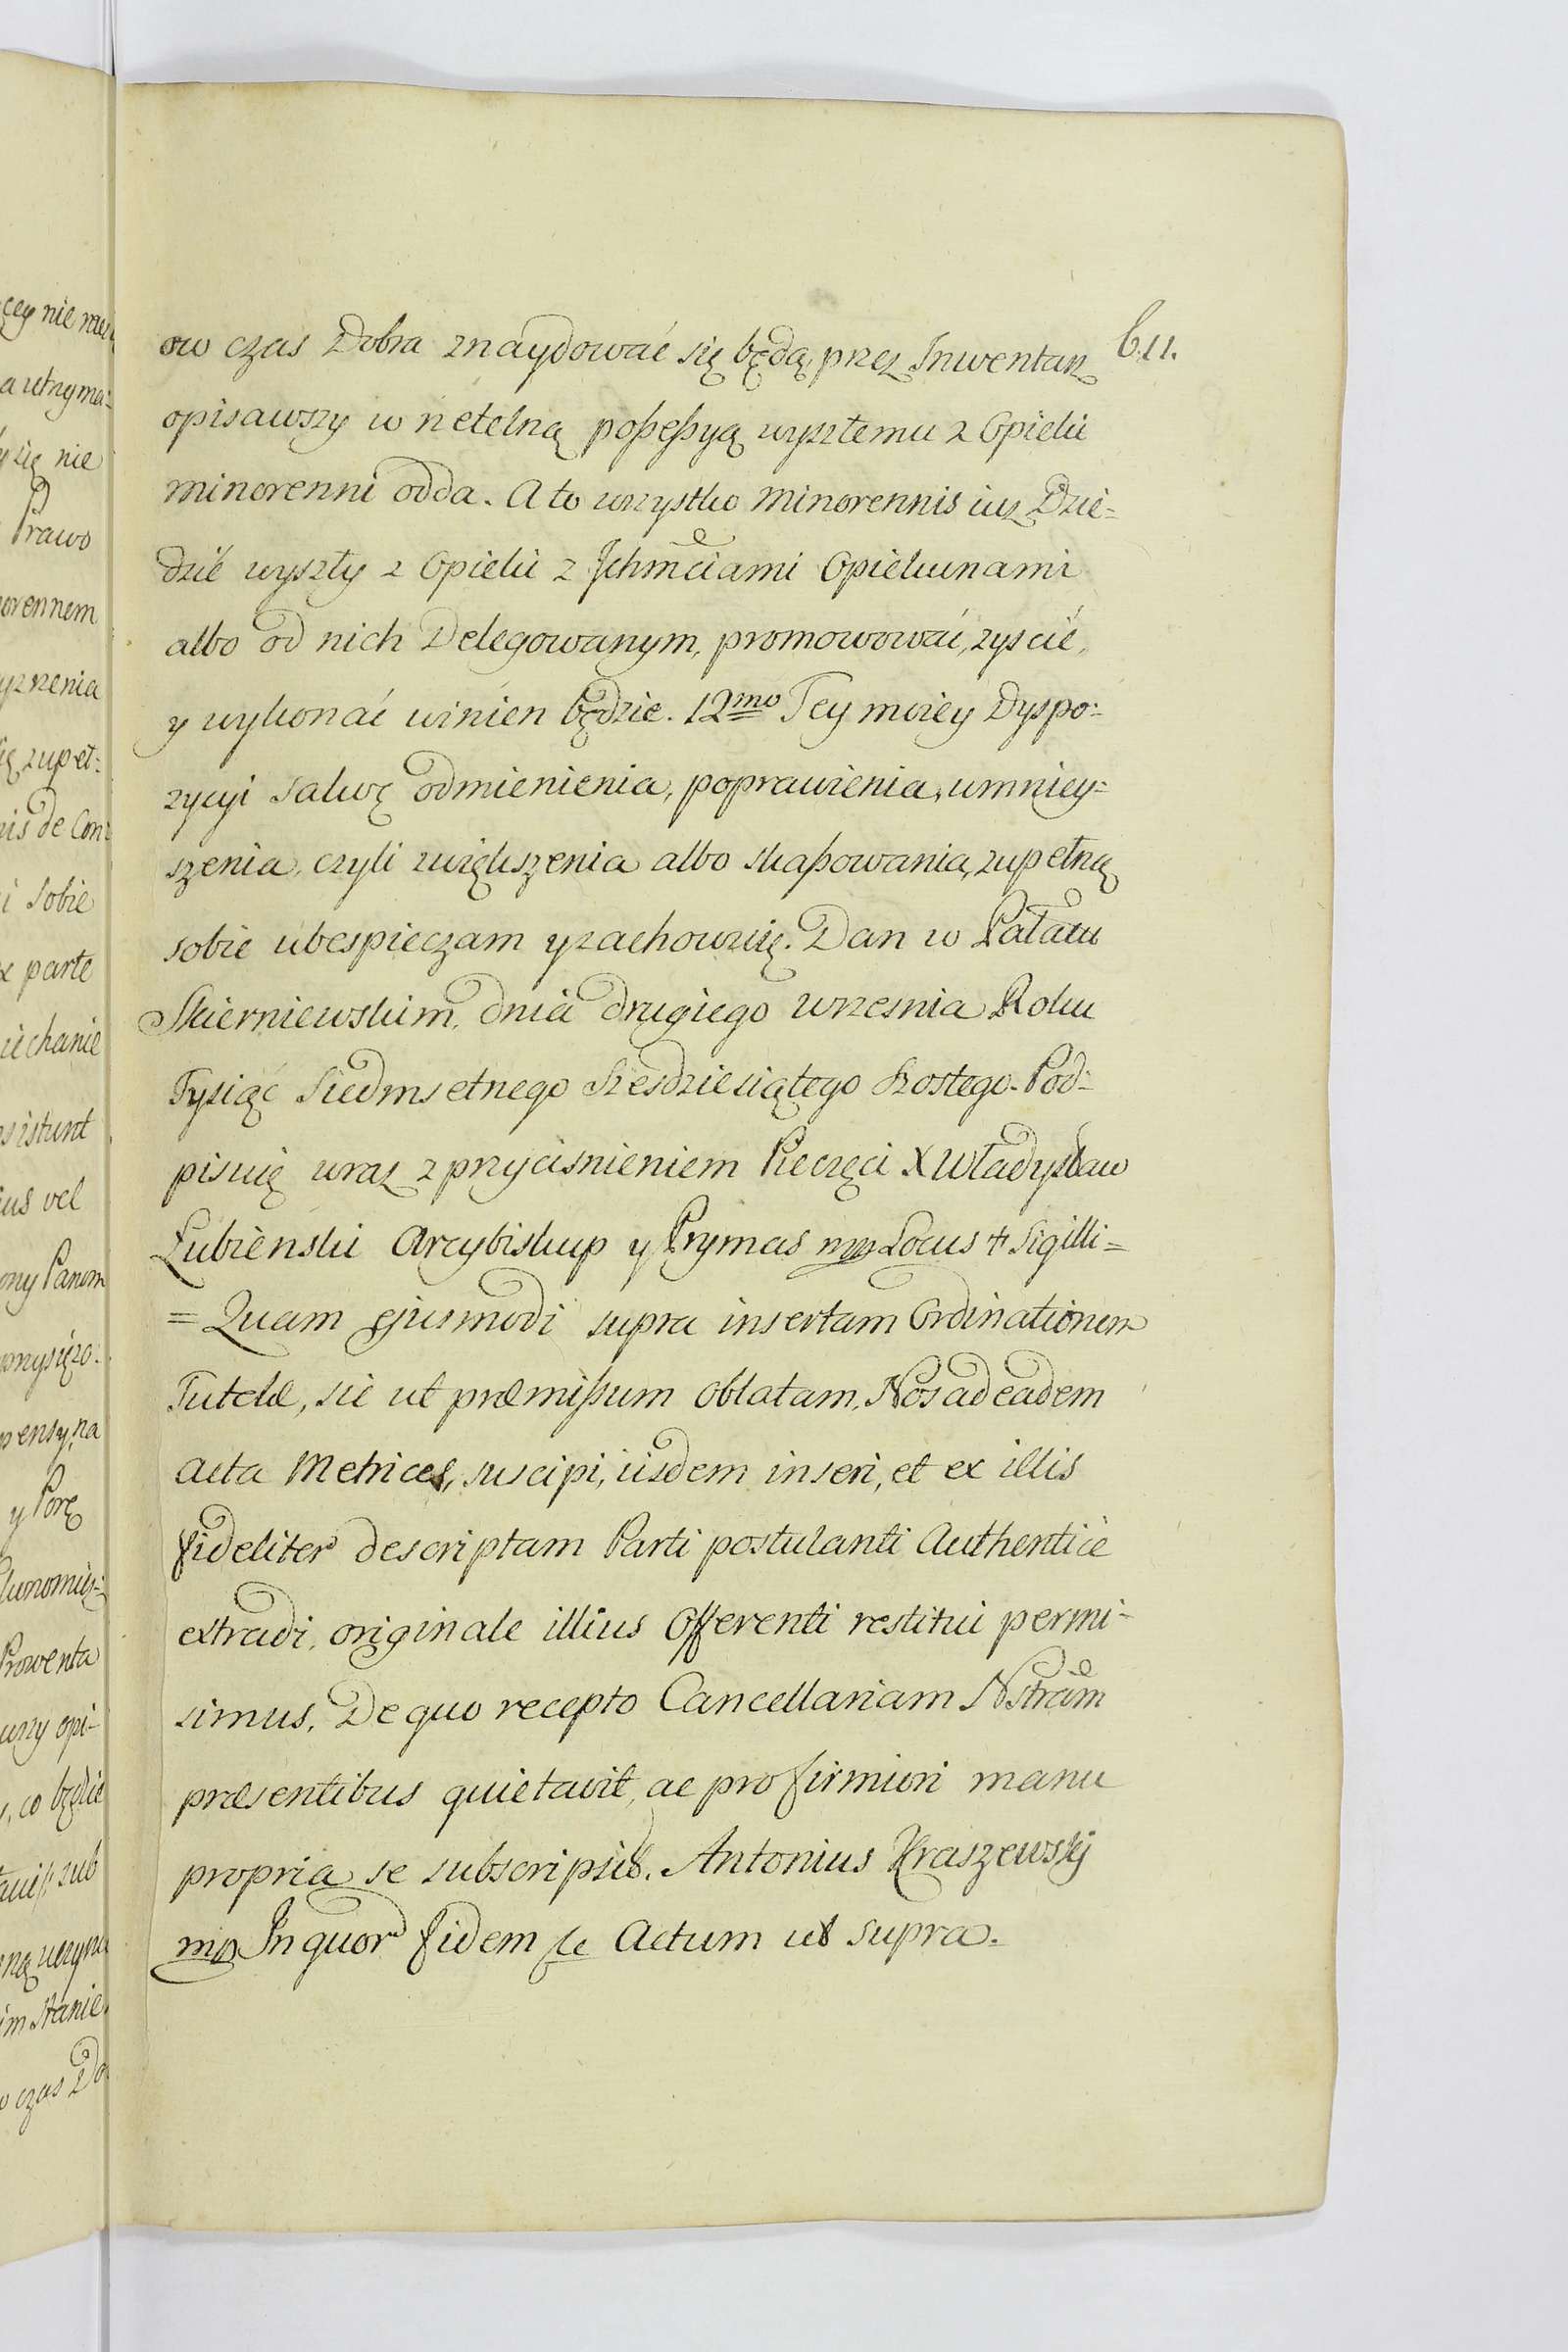 611.
ow czas Dobra znaydować się będą, przez Inwentarz
opisawszy w rzetelną poßeßyą wyszłemu z Opieki
minorenni odda. A to wszystko Minorennis iuż Dzie=
dzić wyszły z Opieki z Ichmciami Opiekunami
albo od nich Delegowanym, promowować, zyscić,
y wykonać winien będzie. 12mo Tey moiey Dyspo=
zycyi salwę odmienienia, poprawienia, umniey=
szenia, czyli zwiększenia albo skaßowania, zupełną
sobie ubespieczam y zachowuię. Dan w Pałacu
Skierniewskim, dnia drugiego wrzesnia Roku
Tysiąc Siedmsetnego Szesdziesiątego Szostego. Pod=
pisuię wraz z przycisnieniem Pieczęci X Władysław
Łubienski Arcybiskup y Prymas mp Locus + Sigilli =
= Quam ejusmodi supra insertam Ordinationem
Tutelæ, sic ut præmißum oblatam, Nos ad eadem
Acta Metrices, suscipi, iisdem inseri, et ex illis
fideliter descriptam Parti postulanti Authentice
extradi, originale illius Offerenti restitui permi-
simus. De quo recepto Cancellariam Nstram
præsentibus quietavit, ac pro firmiori manu
propria se subscripsit. Antonius Kraszewskj
mp In quor fidem etc Actum ut supra.
cey nie
a utrzyma=
się nie
Prawo
orennem
zupeł=
nis de Con=
i sobie
x parte
iechanie
sistunt
ius vel
ony Panom
pensy, na
y Porę
Prowenta
opi-
, co będzie
zub
im Stanie
czas Do